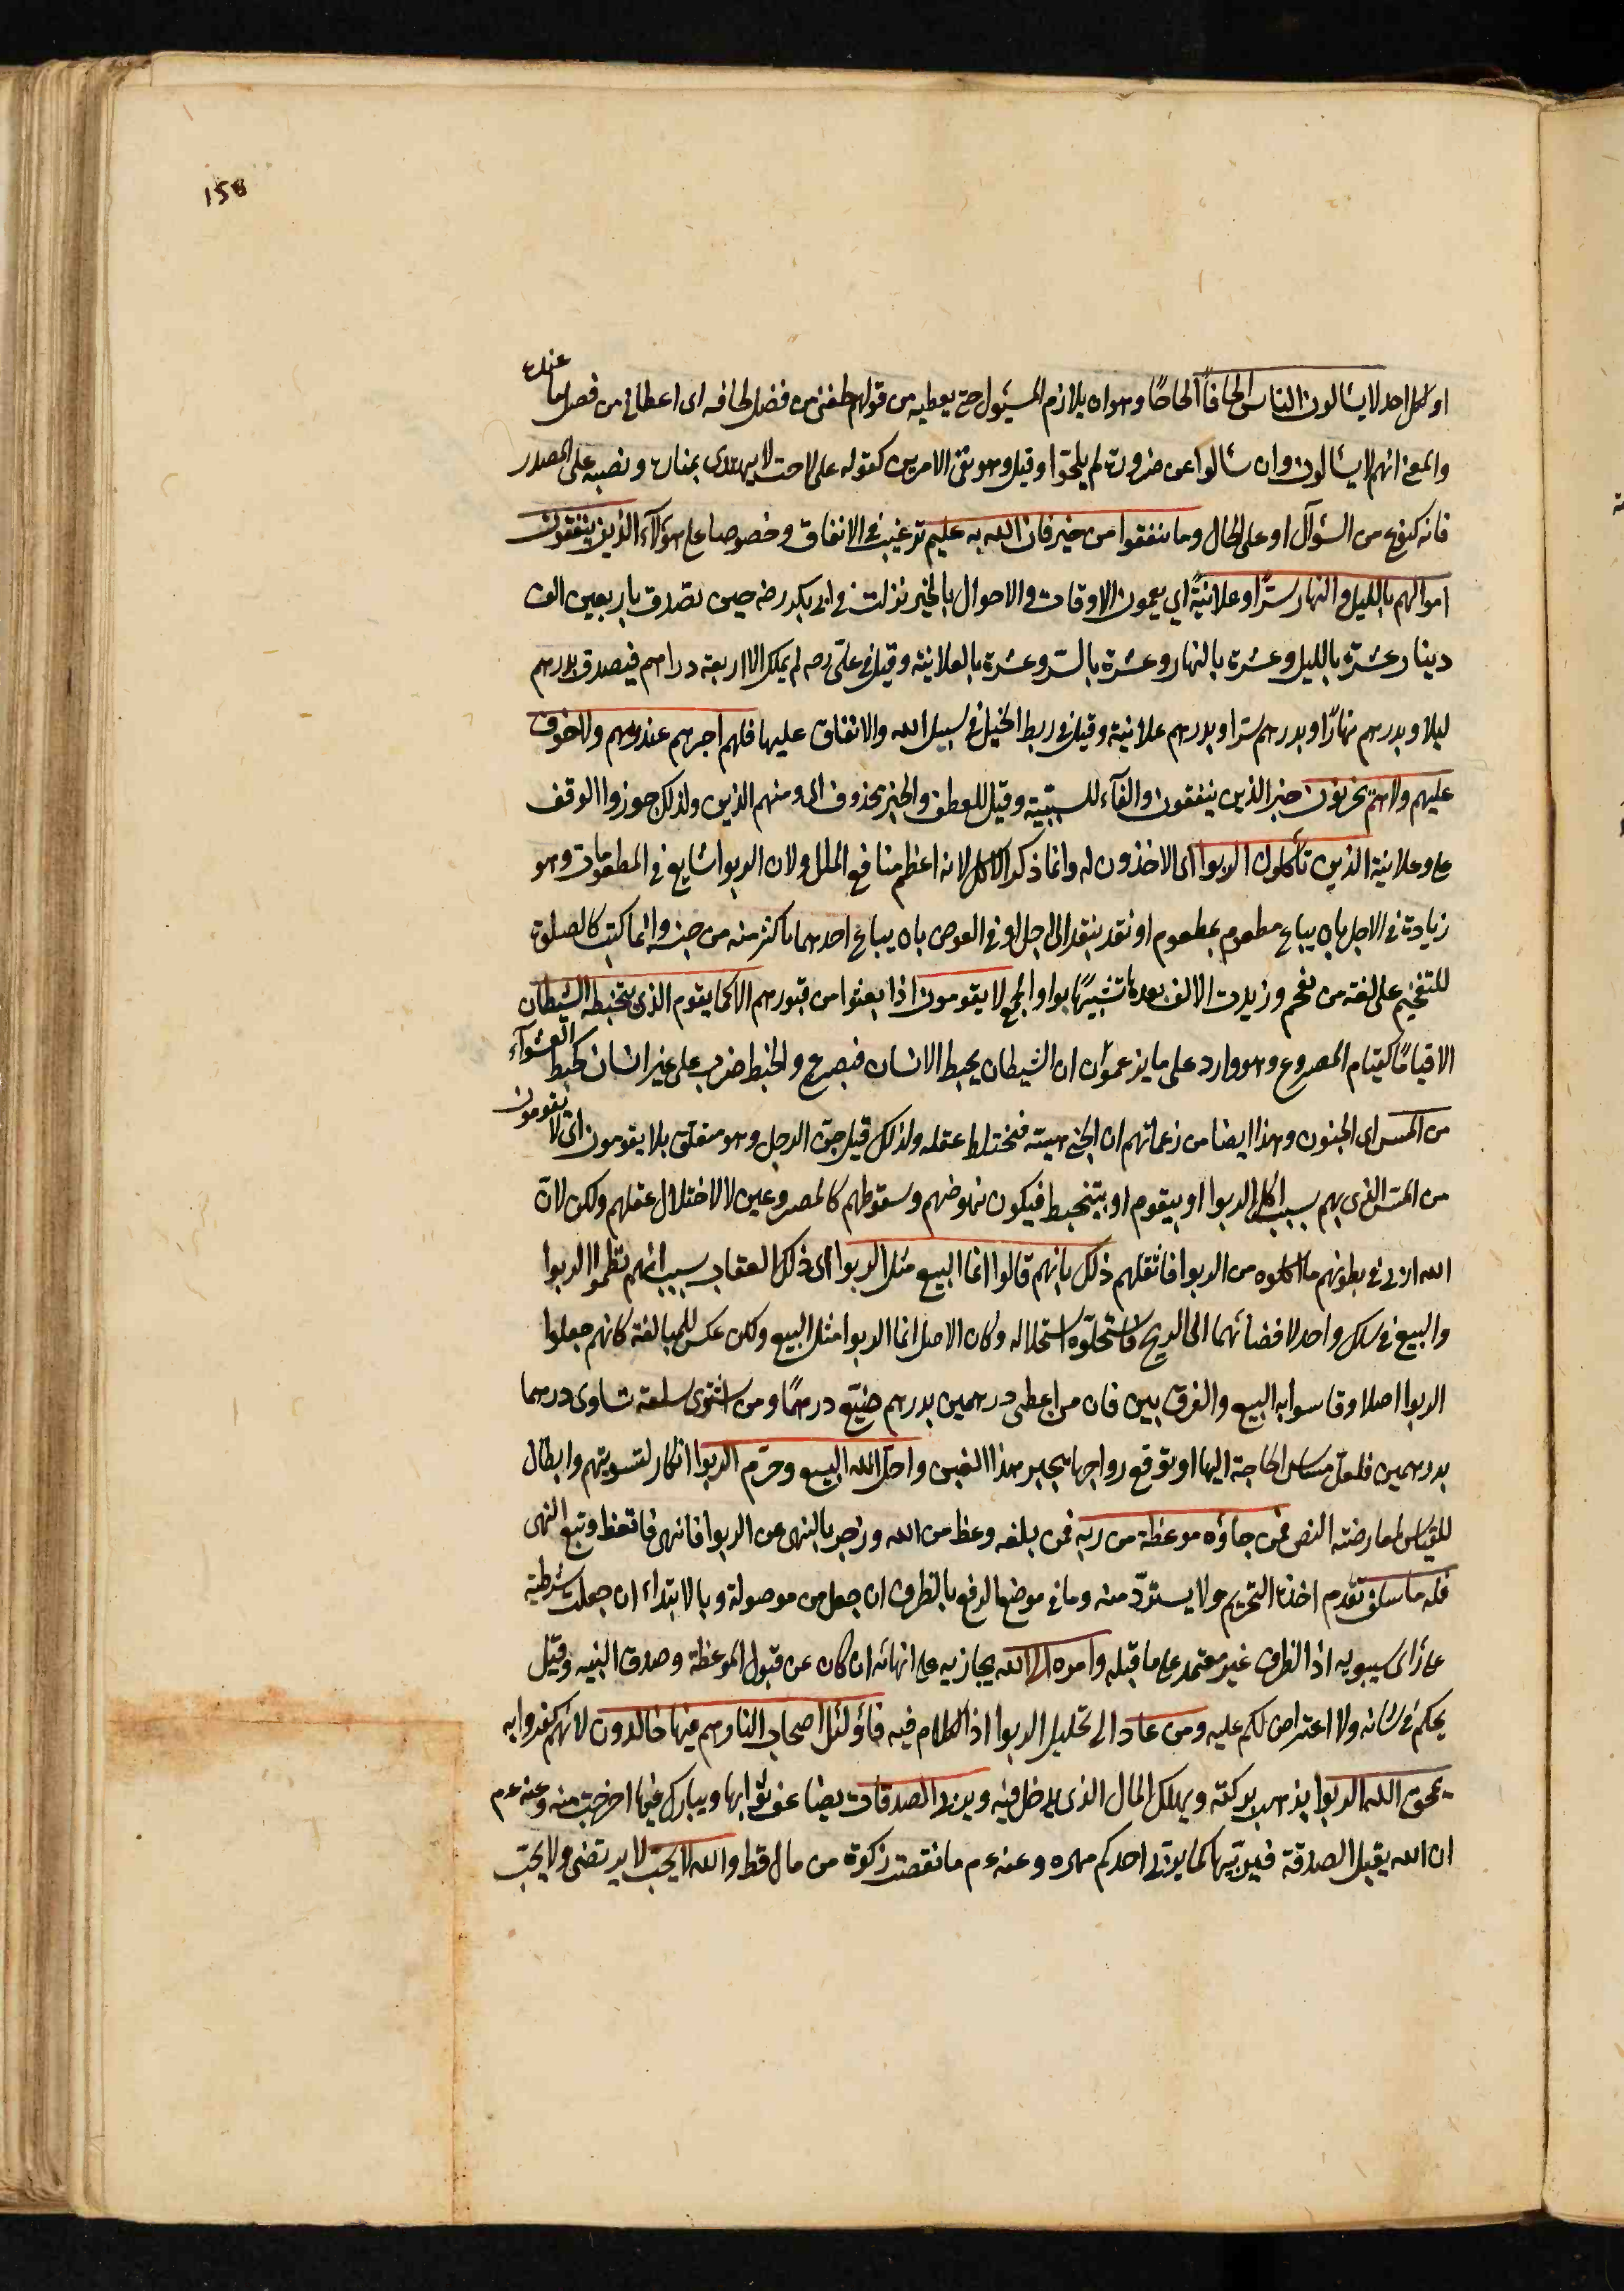 158
او لكل احد لا يسألون الناس الحافا الحاحا وهو ان يلازم المسئول حتى يعطيه من قولهم لحفنى من فضل لحافه اى اعطانى من فضل ما عنده
والمعنى انهم لا يسألون وان سألوا عن ضرورة لم يلحوا وقيل هو نفى الامرين كقوله على لاحب لا يهتدى بمناره ونصبه على المصدر
فانه كنوع من السؤال او على الحال وما تنفقوا من خير فان الله به عليم ترغيب فى الانفاق وخصوصا على هؤلاء الذين ينفقون
اموالهم بالليل والنهار سرا وعلانية اي يعمون الاوقات والاحوال بالخير نزلت فى ابى بكر رضه حين تصدق باربعين الف
دينار عشرة بالليل وعشرة بالنهار وعشرة بالسر وعشرة بالعلانية وقيل فى على رضه لم يملك الا اربعة دراهم فتصدق بدرهم
ليلا وبدرهم نهارا وبدرهم سرا وبدرهم علانية وقيل فى ربط الخيل فى سبيل الله والانفاق عليها فلهم اجرهم عند ربهم ولا خوف
عليهم ولا هم يحزنون خبر الذين ينفقون والفاء للسببية وقيل للعطف والخبر محذوف اى ومنهم الذين ولذلك جوزوا الوقف
على وعلانية الذين يأكلون الربوا اى الاخذون له وانما ذكر الاكل لانه اعظم منافع المال ولان الربوا شايع فى المطعومات وهو
زيادة فى الاجل بان يباع مطعوم بمطعوم او نقد بنقد الى اجل او فى العوض بان يباع احدهما باكثر منه من جنسه وانما كتب كالصلوة
للتفخيم على لغة من يفخم وزيدت الالف بعدها تشبيها بواو الجمع لا يقومون اذا بعثوا من قبورهم الا كما يقوم الذى يتخبطه الشيطان
الا قياما كقيام المصروع وهو وارد على ما يزعمون ان الشيطان يخبط الانسان فيصرع والخبط ضرب على غير اتساق كخبط العشواء
من المس اى الجنون وهذا ايضا من زعماتهم ان الجنى يمسه فيختلط عقله ولذلك قيل جن الرجل وهو متعلق بلا يقومون اى لا يقومون
من المس الذى بهم بسبب اكل الربوا او بيقوم او بيتخبط فيكون نهوضهم وسقوطهم كالمصروعين لا لاختلال عقلهم ولكن لان
الله اربى فى بطونهم ما اكلوه من الربوا فاثقلهم ذلك بانهم قالوا انما البيع مثل الربوا اى ذلك العقاب بسبب انهم نظموا الربوا
والبيع فى سلك واحد لافضائهما الى الربح فاستحلوه استحلاله وكان الاصل انما الربوا مثل البيع ولكن عكس للمبالغة كانهم جعلوا
الربوا اصلا وقاسوا به البيع والفرق بين فان من اعطى درهمين بدرهم ضيع درهما ومن اشترى سلعة تساوى درهما
بدرهمين فلعل مساس الحاجة اليها او توقع رواجها يجبر هذا الغبن واحل الله البيع وحرم الربوا انكار لتسويتهم وابطال
للقياس لمعارضته النص فمن جاؤه موعظة من ربه فمن بلغه وعظ من الله وزجر بالنهى عن الربوا فانتهى فاتعظ وتبع النهى
فله ما سلف تقدم اخذه التحريم ولا يسترد منه وما فى موضع الرفع بالظرف ان جعل من موصولة وبالابتداء ان جعلت شرطية
على رأى سيبويه اذ الظرف غير معتمد على ما قبله وامره الى الله يجازيه على انتهائه ان كان عن قبول الموعظة وصدق النيه وقيل
يحكم فى شانه ولا اعتراض لكم عليه ومن عاد الى تحليل الربوا اذ الكلام فيه فاولئك اصحاب النار هم فيها خالدون لانهم كفروا به
يمحق الله الربوا يذهب بركته ويهلك المال الذى يدخل فيه ويربى الصدقات يضاعف ثوابها ويبارك فيما اخرجت منه وعنه عم
ان الله يقبل الصدقة فيربيها كما يربى احدكم مهره وعنه عم ما نقصت زكوة من مال قط والله لا يحب لا يرتضى ولا يحب